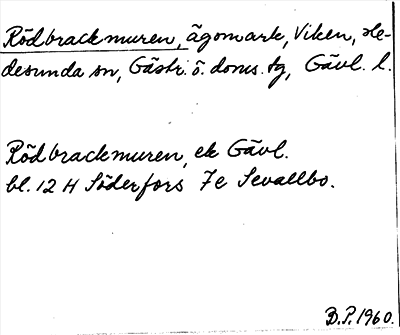 Rödbrackmuren, ägomark, Viken, He-
desunda sn, Gästr. ö. doms. tg, Gävl. l.
Rödbrackmuren, ek Gävl.
bl. 12 H Söderfors 7e Sevallbo.
B.P. 1960.